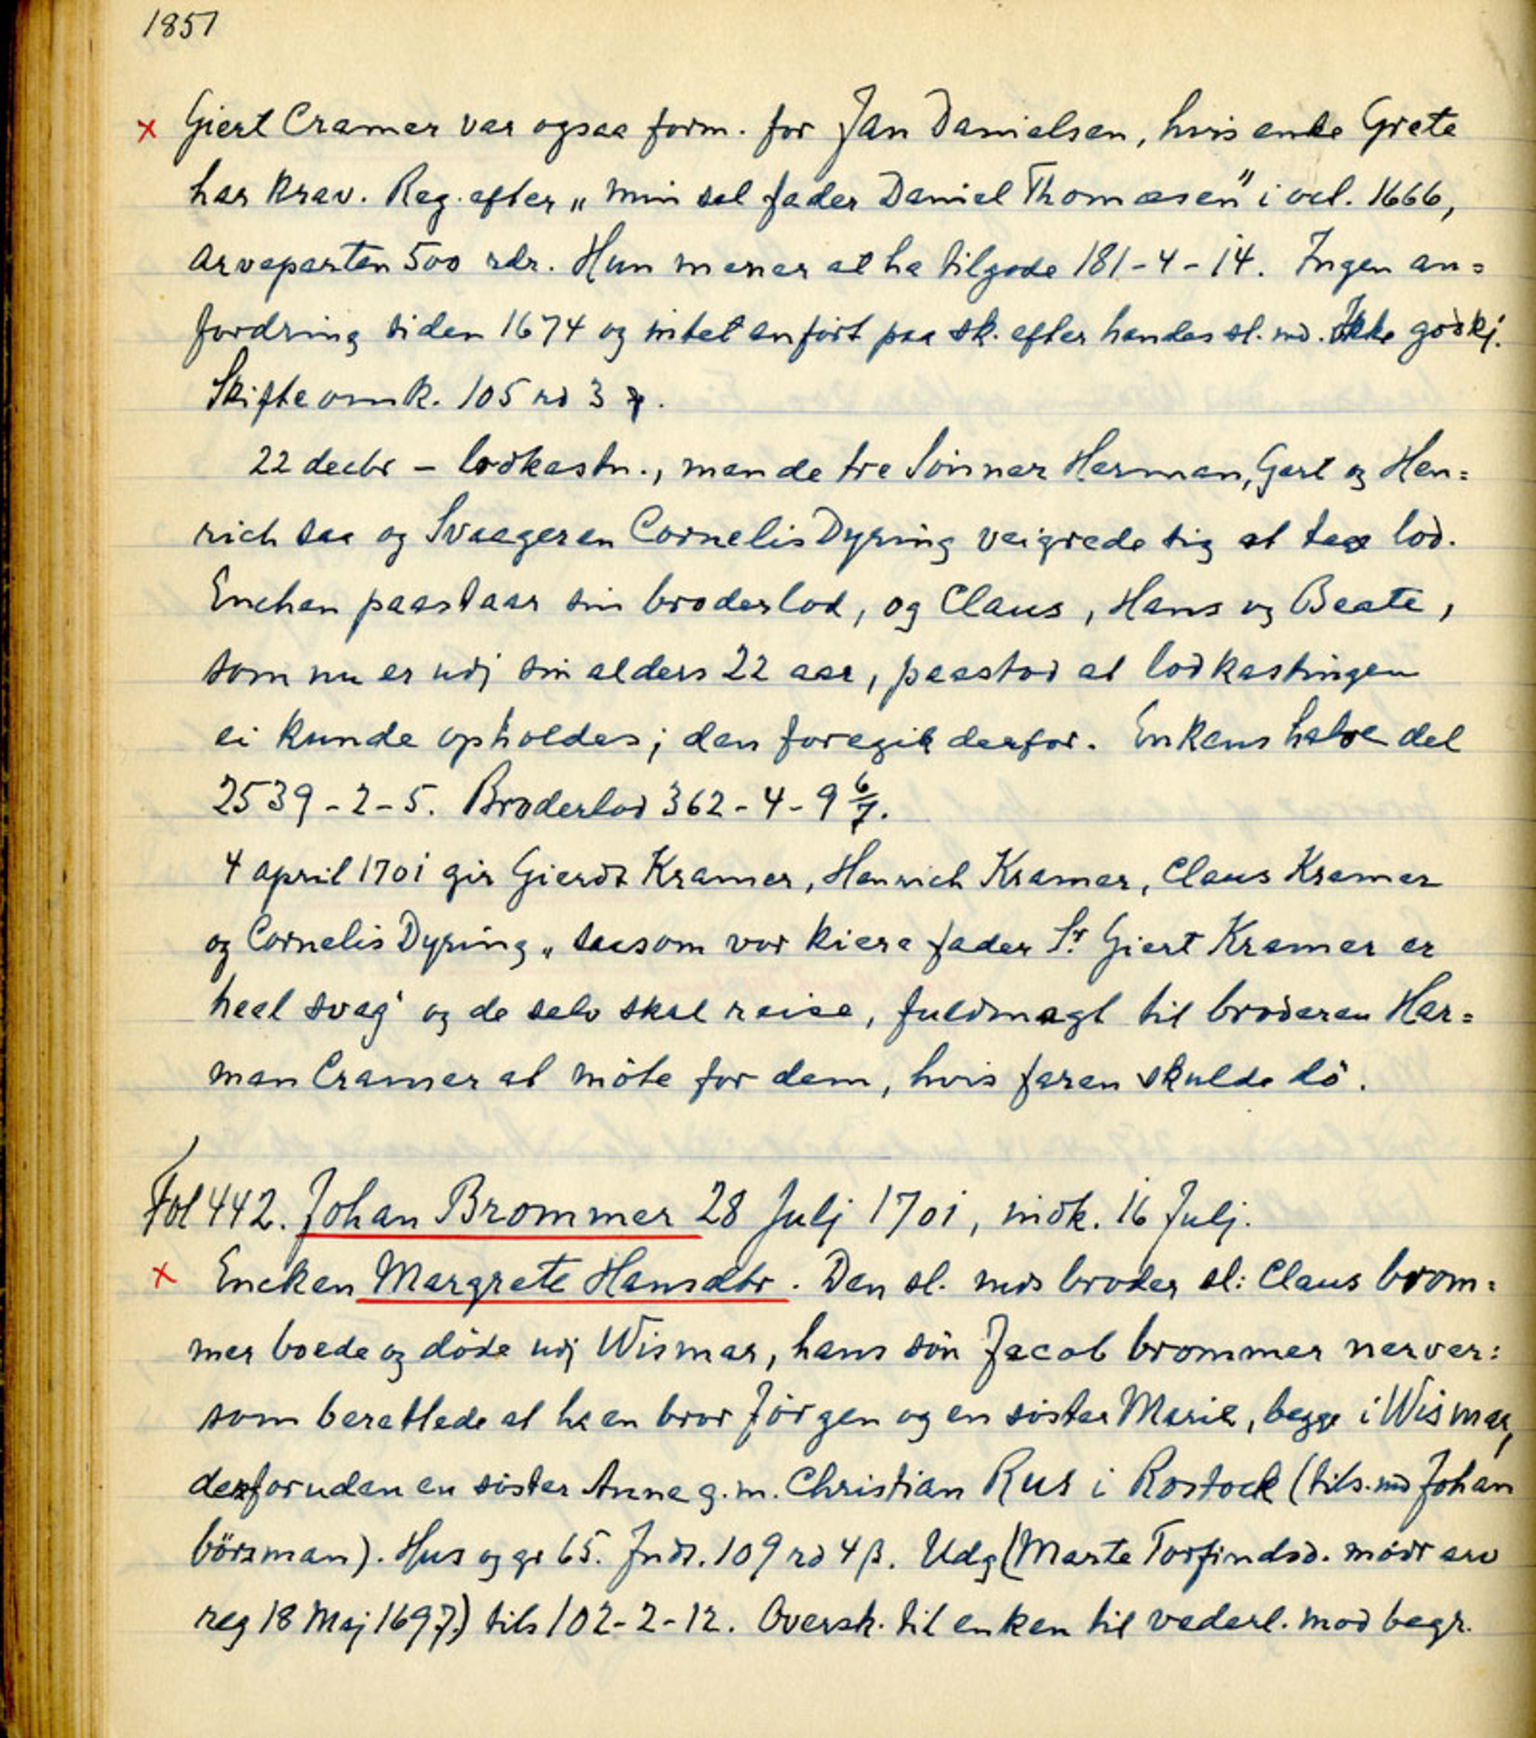 1851
x Giert Cramer var ogsaa form. for Jan Danielsen, hvis enke Grete
har krav. Reg. efter „min sal fader Daniel Thomæsen" i oct. 1666,
arveparten 500 rdr. Hun mener at ha tilgode 181-4-14. Ingen an=
fordring siden 1674 og intet anført paa sk. efter hendes sl. md. Ikke godkj.
Skifteomk. 105 rd 3
22 decbr – lodkastn., men de tre Sønner Herman, Gert og Hen=
rich saa og Svaageren Cornelis Dyring veigrede sig at tage lod.
Enchen paastaar sin broderlod, og Claus, Hans og Beate,
som nu er udj sin alders 22 aar, paastod at lodkastingen
ei kunde opholdes; den foregik derfor. Enkens halve del
2539-2-5. Broderlod 362-4-9 6/7.
4 april 1701 gir Gierdt Kramer, Henrich Kramer, Claus Kramer
og Cornelis Dyring „saasom vor kiere fader Sr. Giert Kramer er
heel svag" og de selv skal reise, fuldmagt til broderen Har=
man Cramer at møte for dem, hvis faren skulde dø.
Fol 442. Johan Brommer 28 Julj 1701, indk. 16 Julj.
x Encken Margrete Hansdtr. Den sl. mds broder sl: Claus brom=
mer boede og døde udj Wismar, hans søn Jacob brommer nerver:
som berettede at ha en bror Jørgen og en søster Marie, begge i Wismar,
desforuden en søster Anne g.m. Christian Rus i Rostock (tils. md Johan
börsman). Hus og gr 65. Indt. 109 rd 4 β. Udg (Marte Torfindsd. mødr arv
reg 18 Maj 1697) tils 102-2-12. Oversk. til enken til vederl. mod begr.